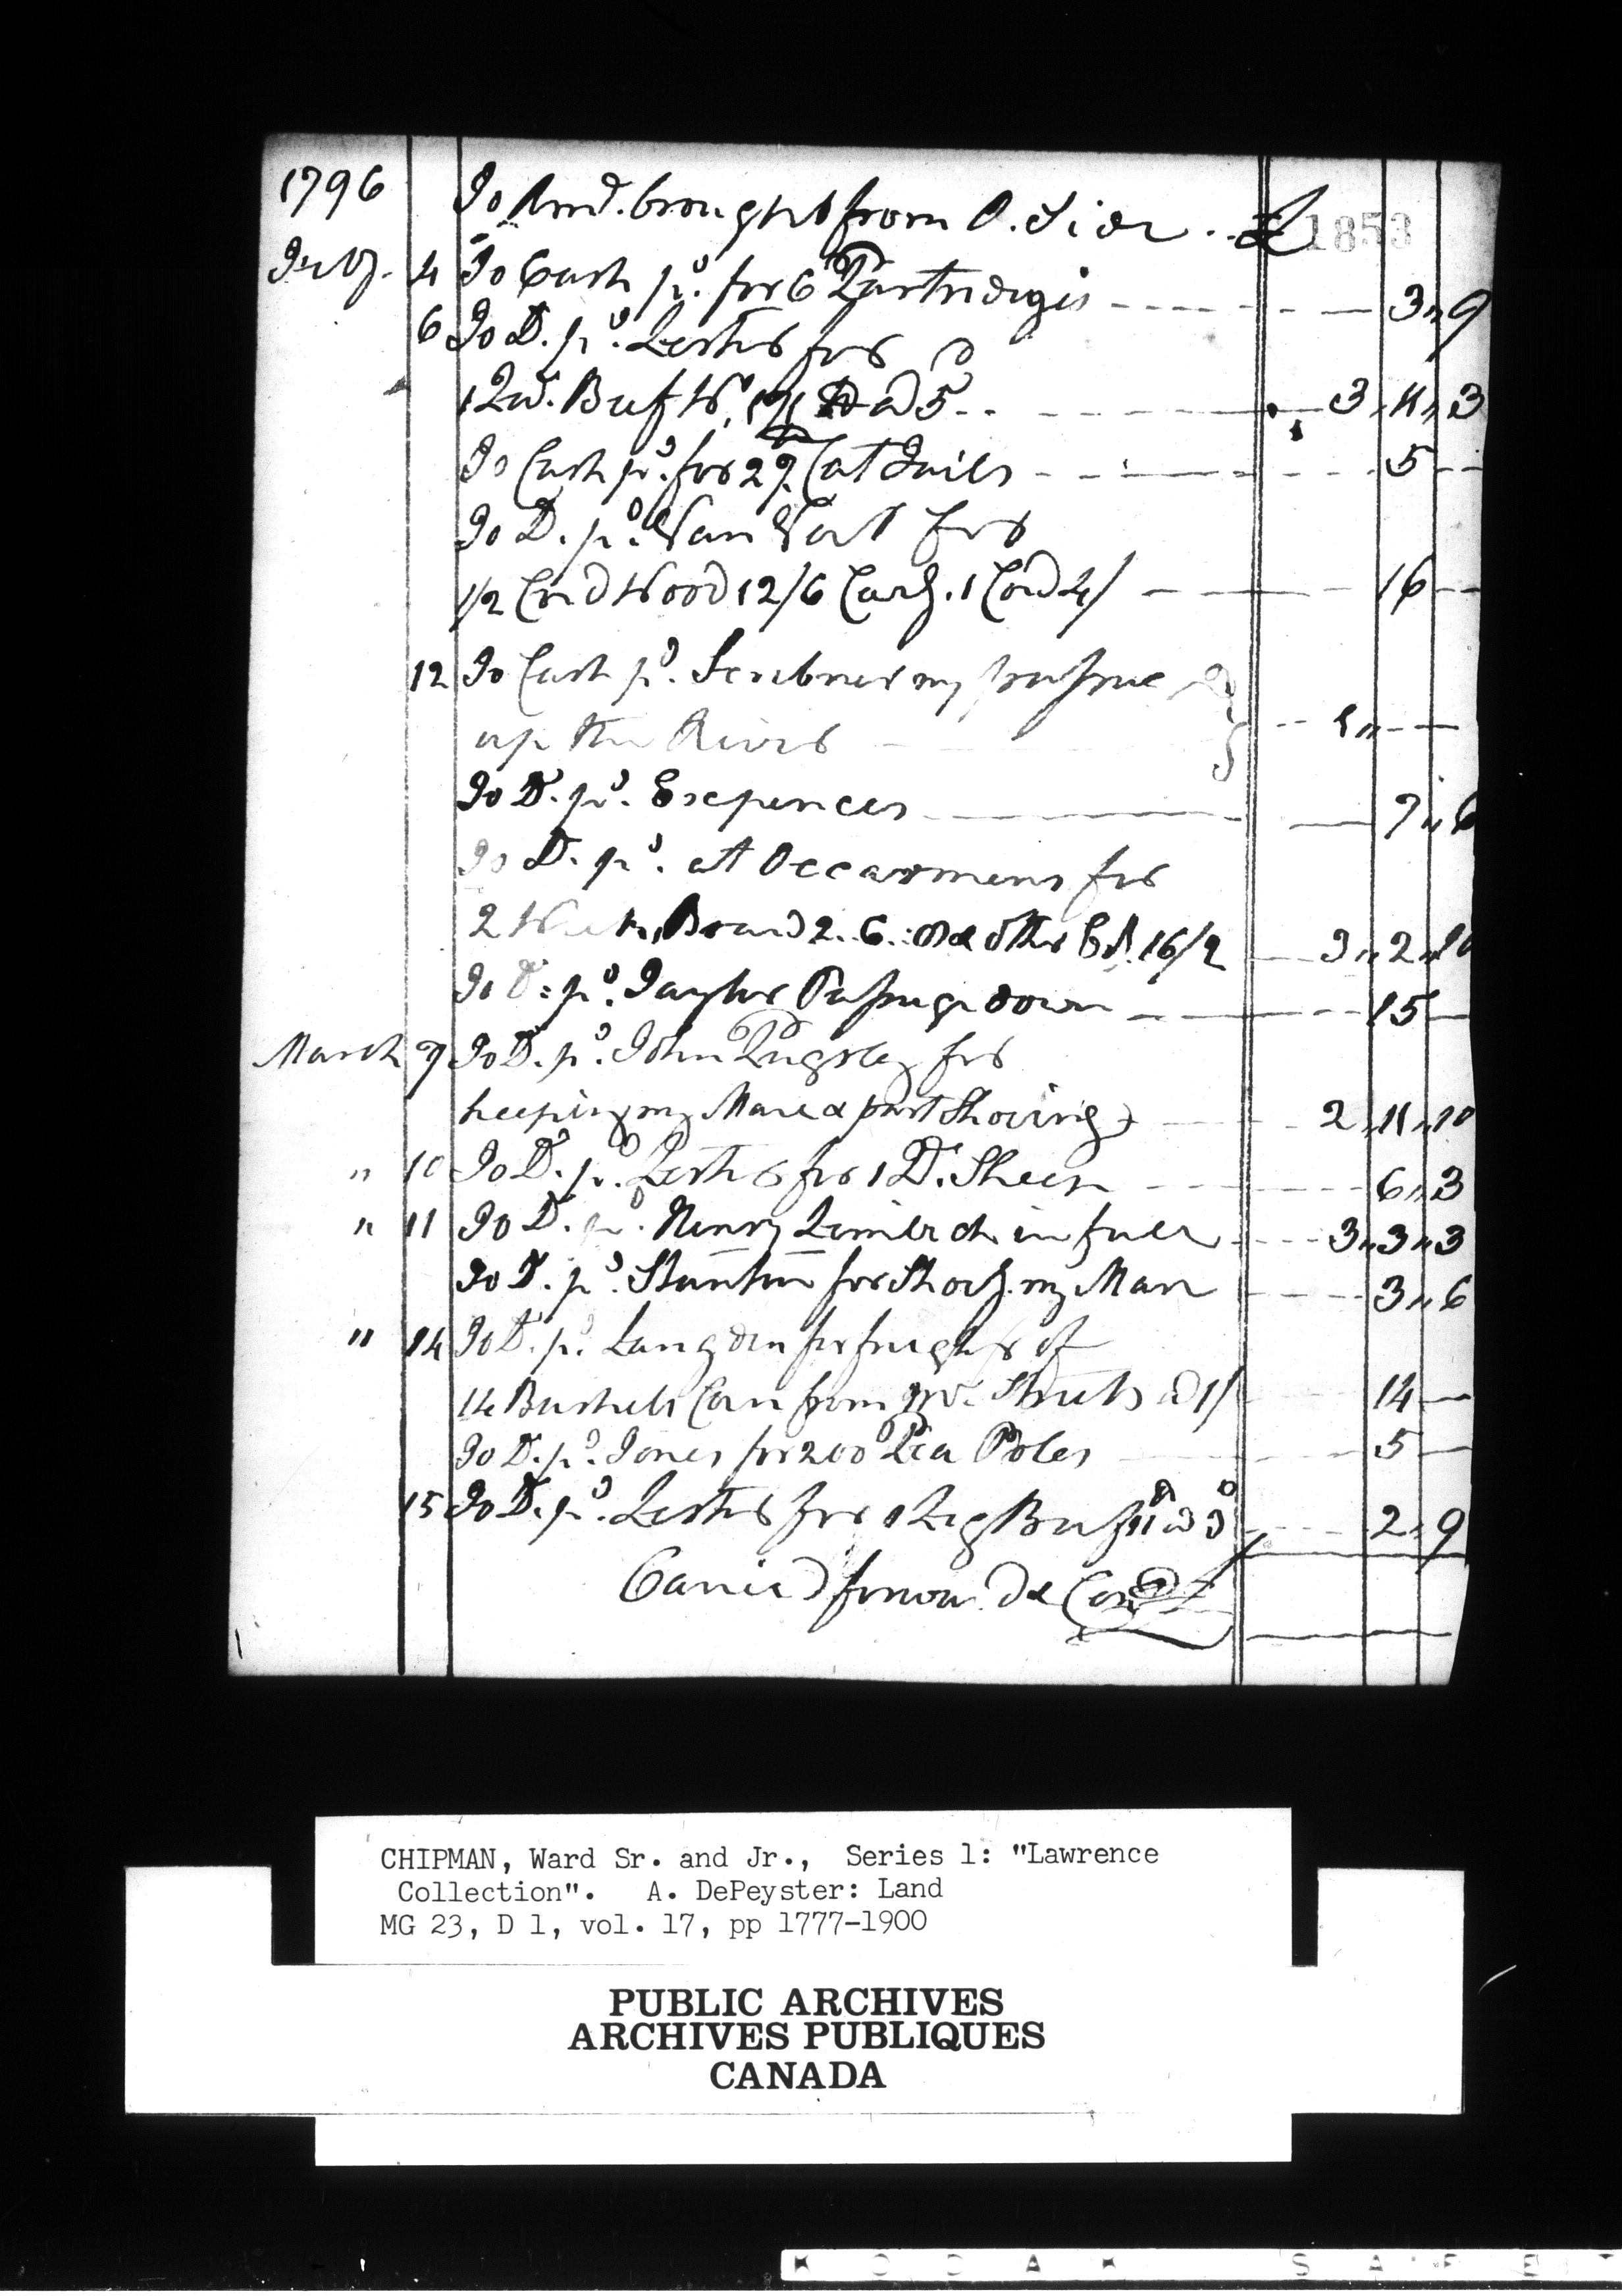 1796 To Amd. brought from O. Side . . £
1853
Feby. 4 To Cash pd. for 6 Partridges 3„9
6 To Do. pd. Lester for
1 Qur. Beef Wt. 171 lb a 5d 3„11„3
To Cash pd. for 2 q. Cat Tails 5
To Do. pd. Van Vort for
1/2 Cord Wood 12/6 Carg. 1 Cord 4/ 16
12 To Cash pd. Scribner my passage
up the River 1„
To Do. pd. Expences 7„6
To Do. pd. at Occarmens for
2 Weeks Board 2..6..8 & other Es. 16/2 3„2„10
To Do: pd. Taylor Passage down 15
March 7 To Do. pd. John Pugsley for
keeping my Mare & part Shoeing 2„11„10
„ 10 To Do. pd. Lester for 1 D. Sheep 6„3
„ 11 To Do. pd. Henry in full 3„3„3
To Do. pd. Stanton for Shoeg. my Mare 3„6
„ 14 To Do. pd. Langden for freight of
14 Bushels Corn from Mr. Streets a 1/ 14
To Do. pd. Jones for 200 Pea Poles 5
15 To Do. pd. Lester for 1 Leg Beef 11 lb a 3d 2„9
Carried forward &
CHIPMAN, Ward Sr. and Jr., Series 1: "Lawrence
Collection". A. DePeyster: Land
MG 23, D 1, vol. 17, pp 1777-1900
PUBLIC ARCHIVES
ARCHIVES PUBLIQUES
CANADA
KODAK SAFET